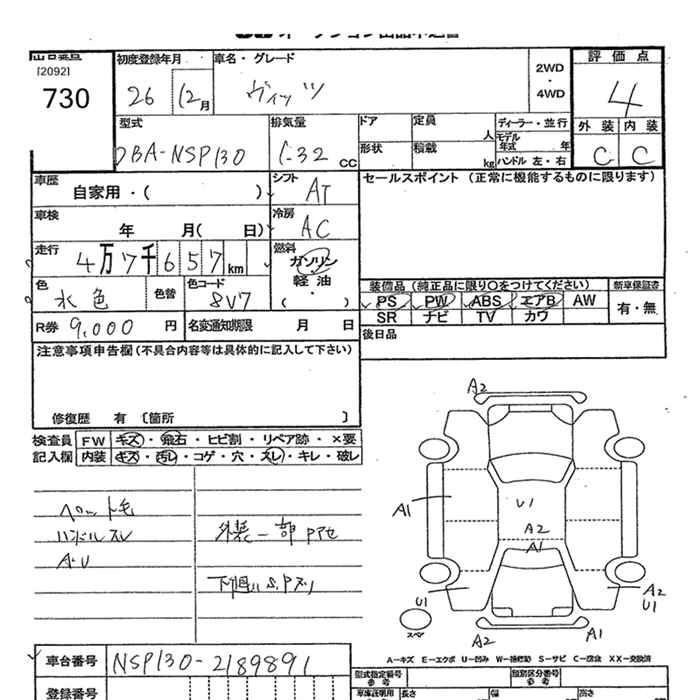 [2092]
730
初度登録年月
26 12月
車名・グレード
ヴィッツ
2WD
・
4WD
評価点
4
外装 内装
C C
型式
DBA-NSP130
排気量
1.32 CC
ドア
形状
定員 人
積載 kg
ディーラー・並行
モデル年式 年
ハンドル 左・右
車歴
自家用・( )
シフト
AT
セールスポイント (正常に機能するものに限ります)
車検 年 月( 日)
冷房
AC
走行
4万7千657km
燃料
ガソリン
軽油
( ・ )
色
水色
色替
色コード
8V7
装備品 (純正品に限り○をつけてください)
PS PW ABS エアB AW
SR ナビ TV カワ
新車保証書
有・無
R券 9,000 円
名変通知期限 月 日
後日品
注意事項申告欄 (不具合内容等は具体的に記入して下さい)
修復歴 有 〔箇所 〕
検査員
記入欄
FW キズ・飛石・ヒビ割・リペア跡・×要
内装 キズ・汚レ・コゲ・穴・スレ・キレ・破レ
ハンドルスレ
A・U
外装一部Pアセ
下廻りS.Pズリ
A2
A1
U1
A2
A1
U1
A2
U1
スペア
A2
A1
A-キズ E-エクボ U-凹み W-補修跡 S-サビ C-腐食 XX-交換済
車台番号
NSP130-2189891
登録番号
型式指定番号
参考
類別区分番号
参考
長さ
幅
高さ